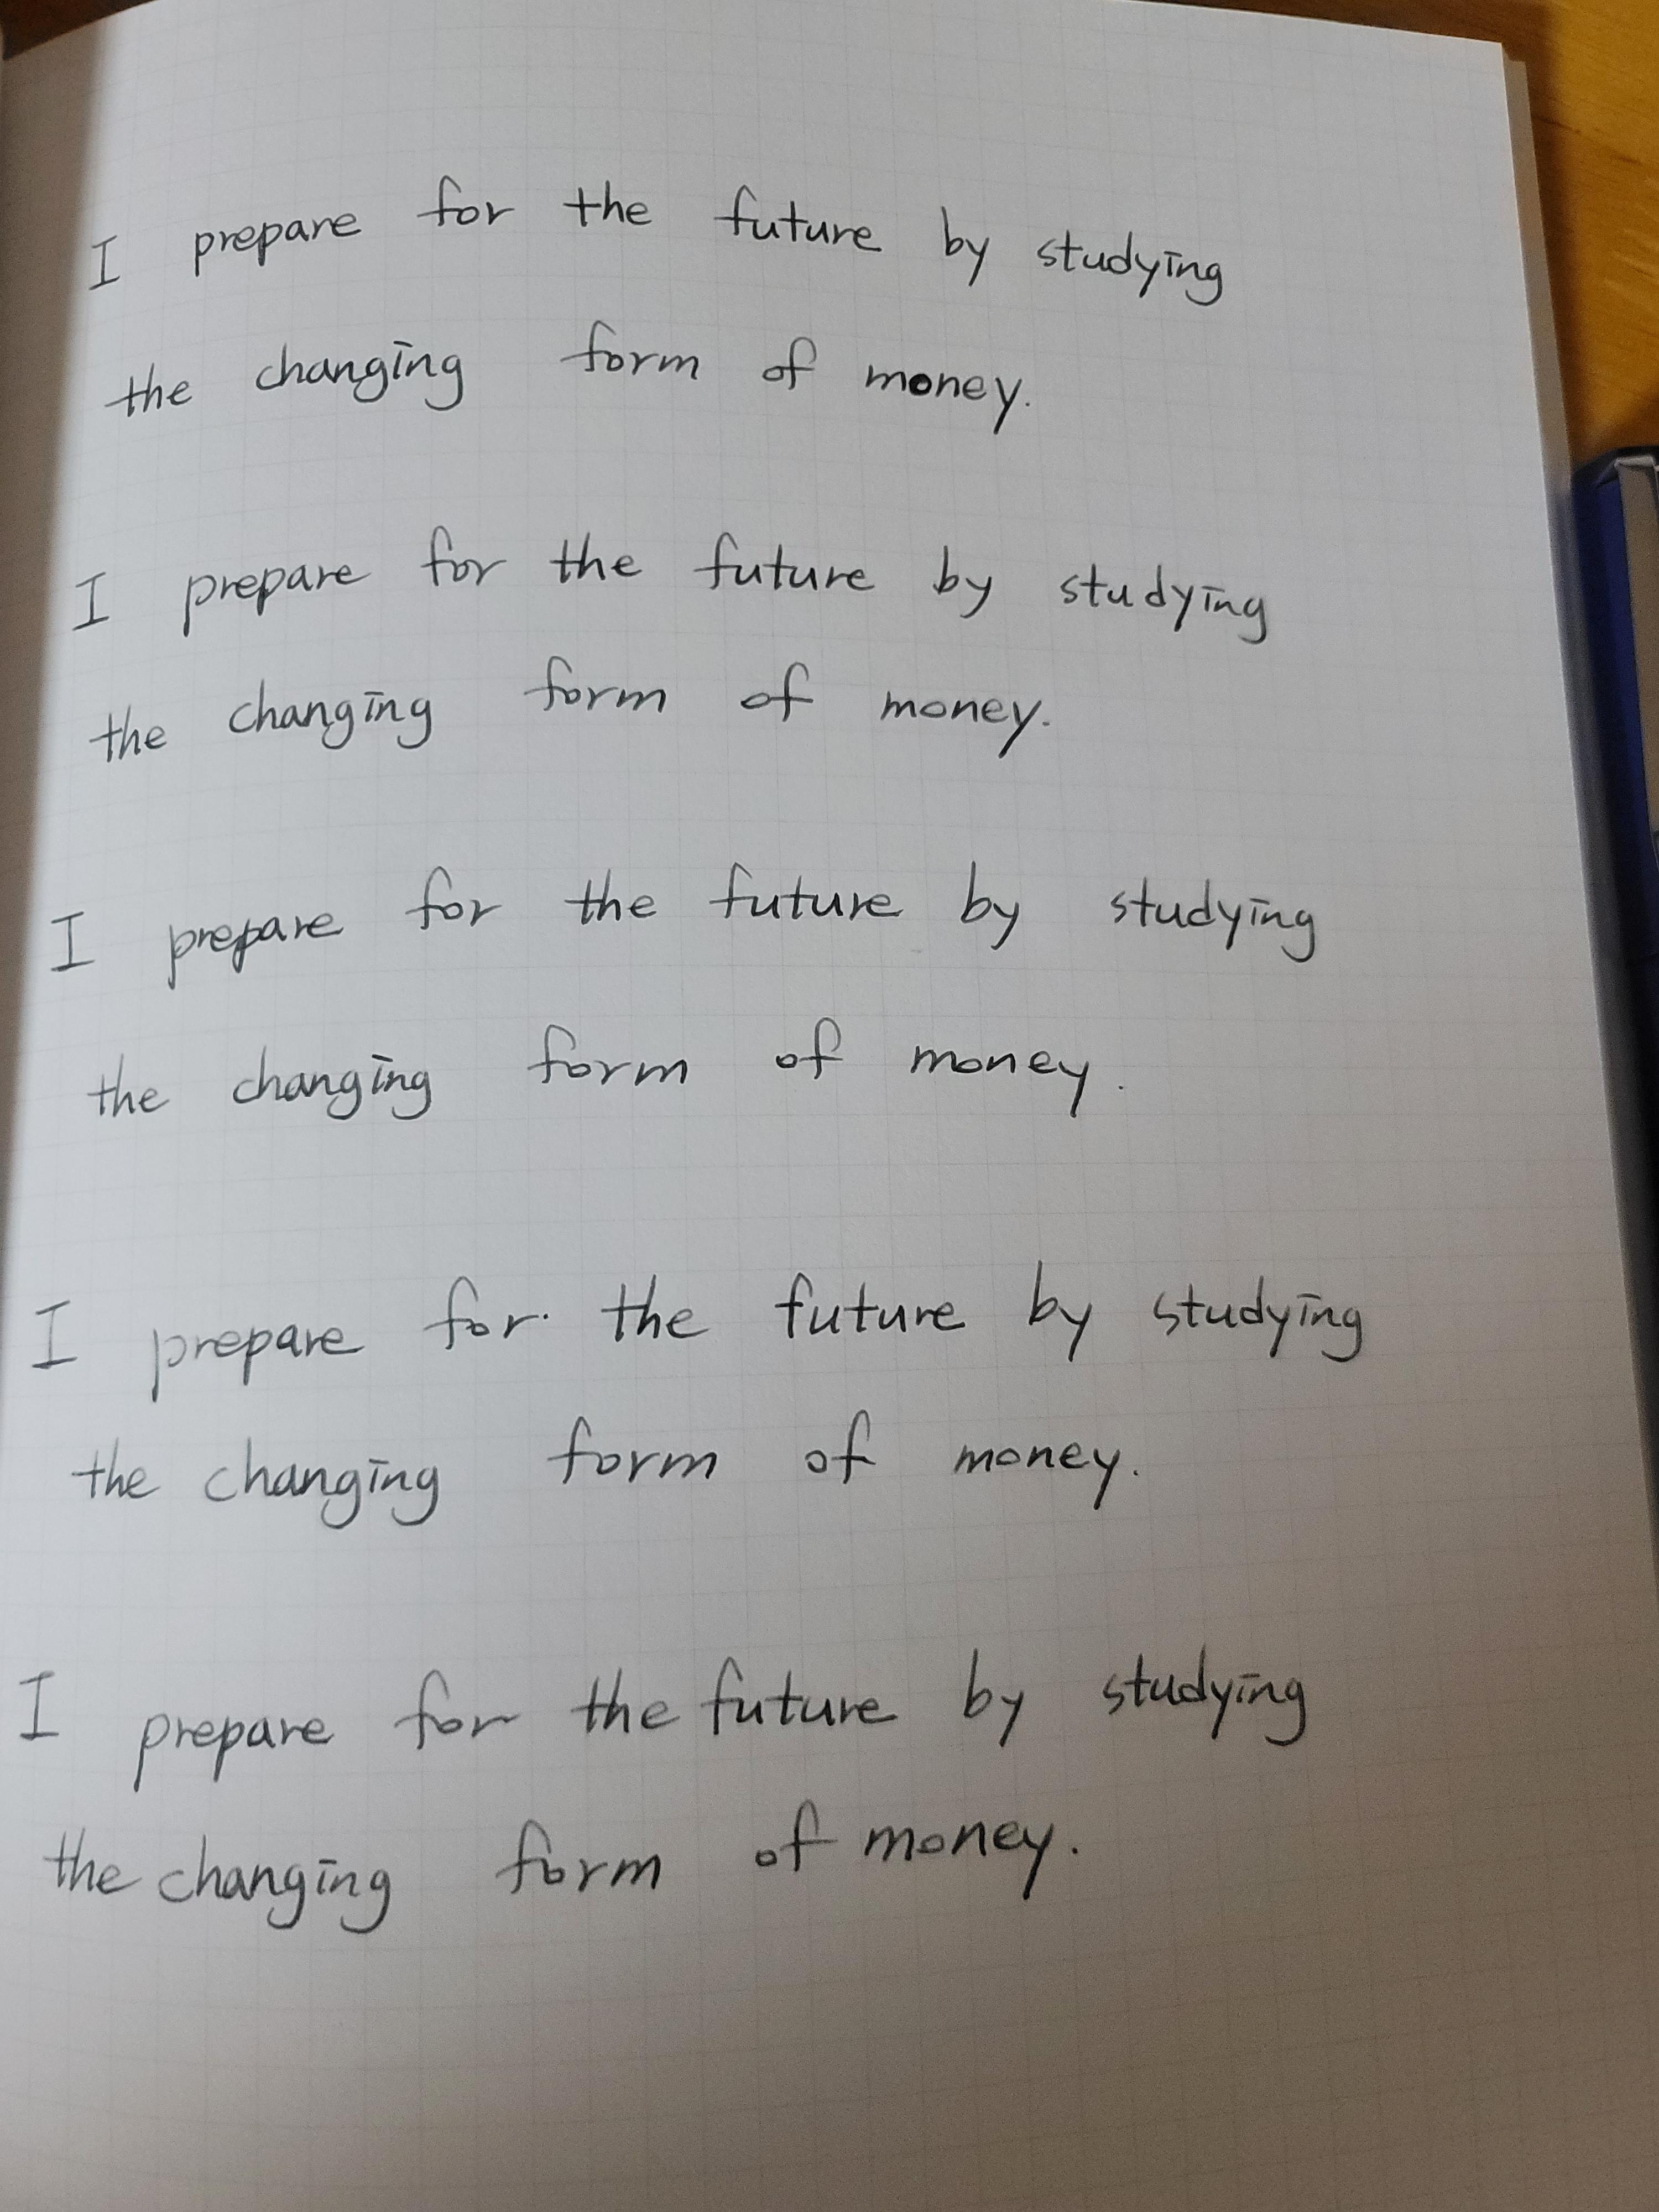 I prepare for the future by studying
the changing form of money.
I prepare for the future by studying
the changing form of money.
I prepare for the future by studying
the changing form of money.
I prepare for the future by studying
the changing form of money.
I prepare for the future by studying
the changing form of money.